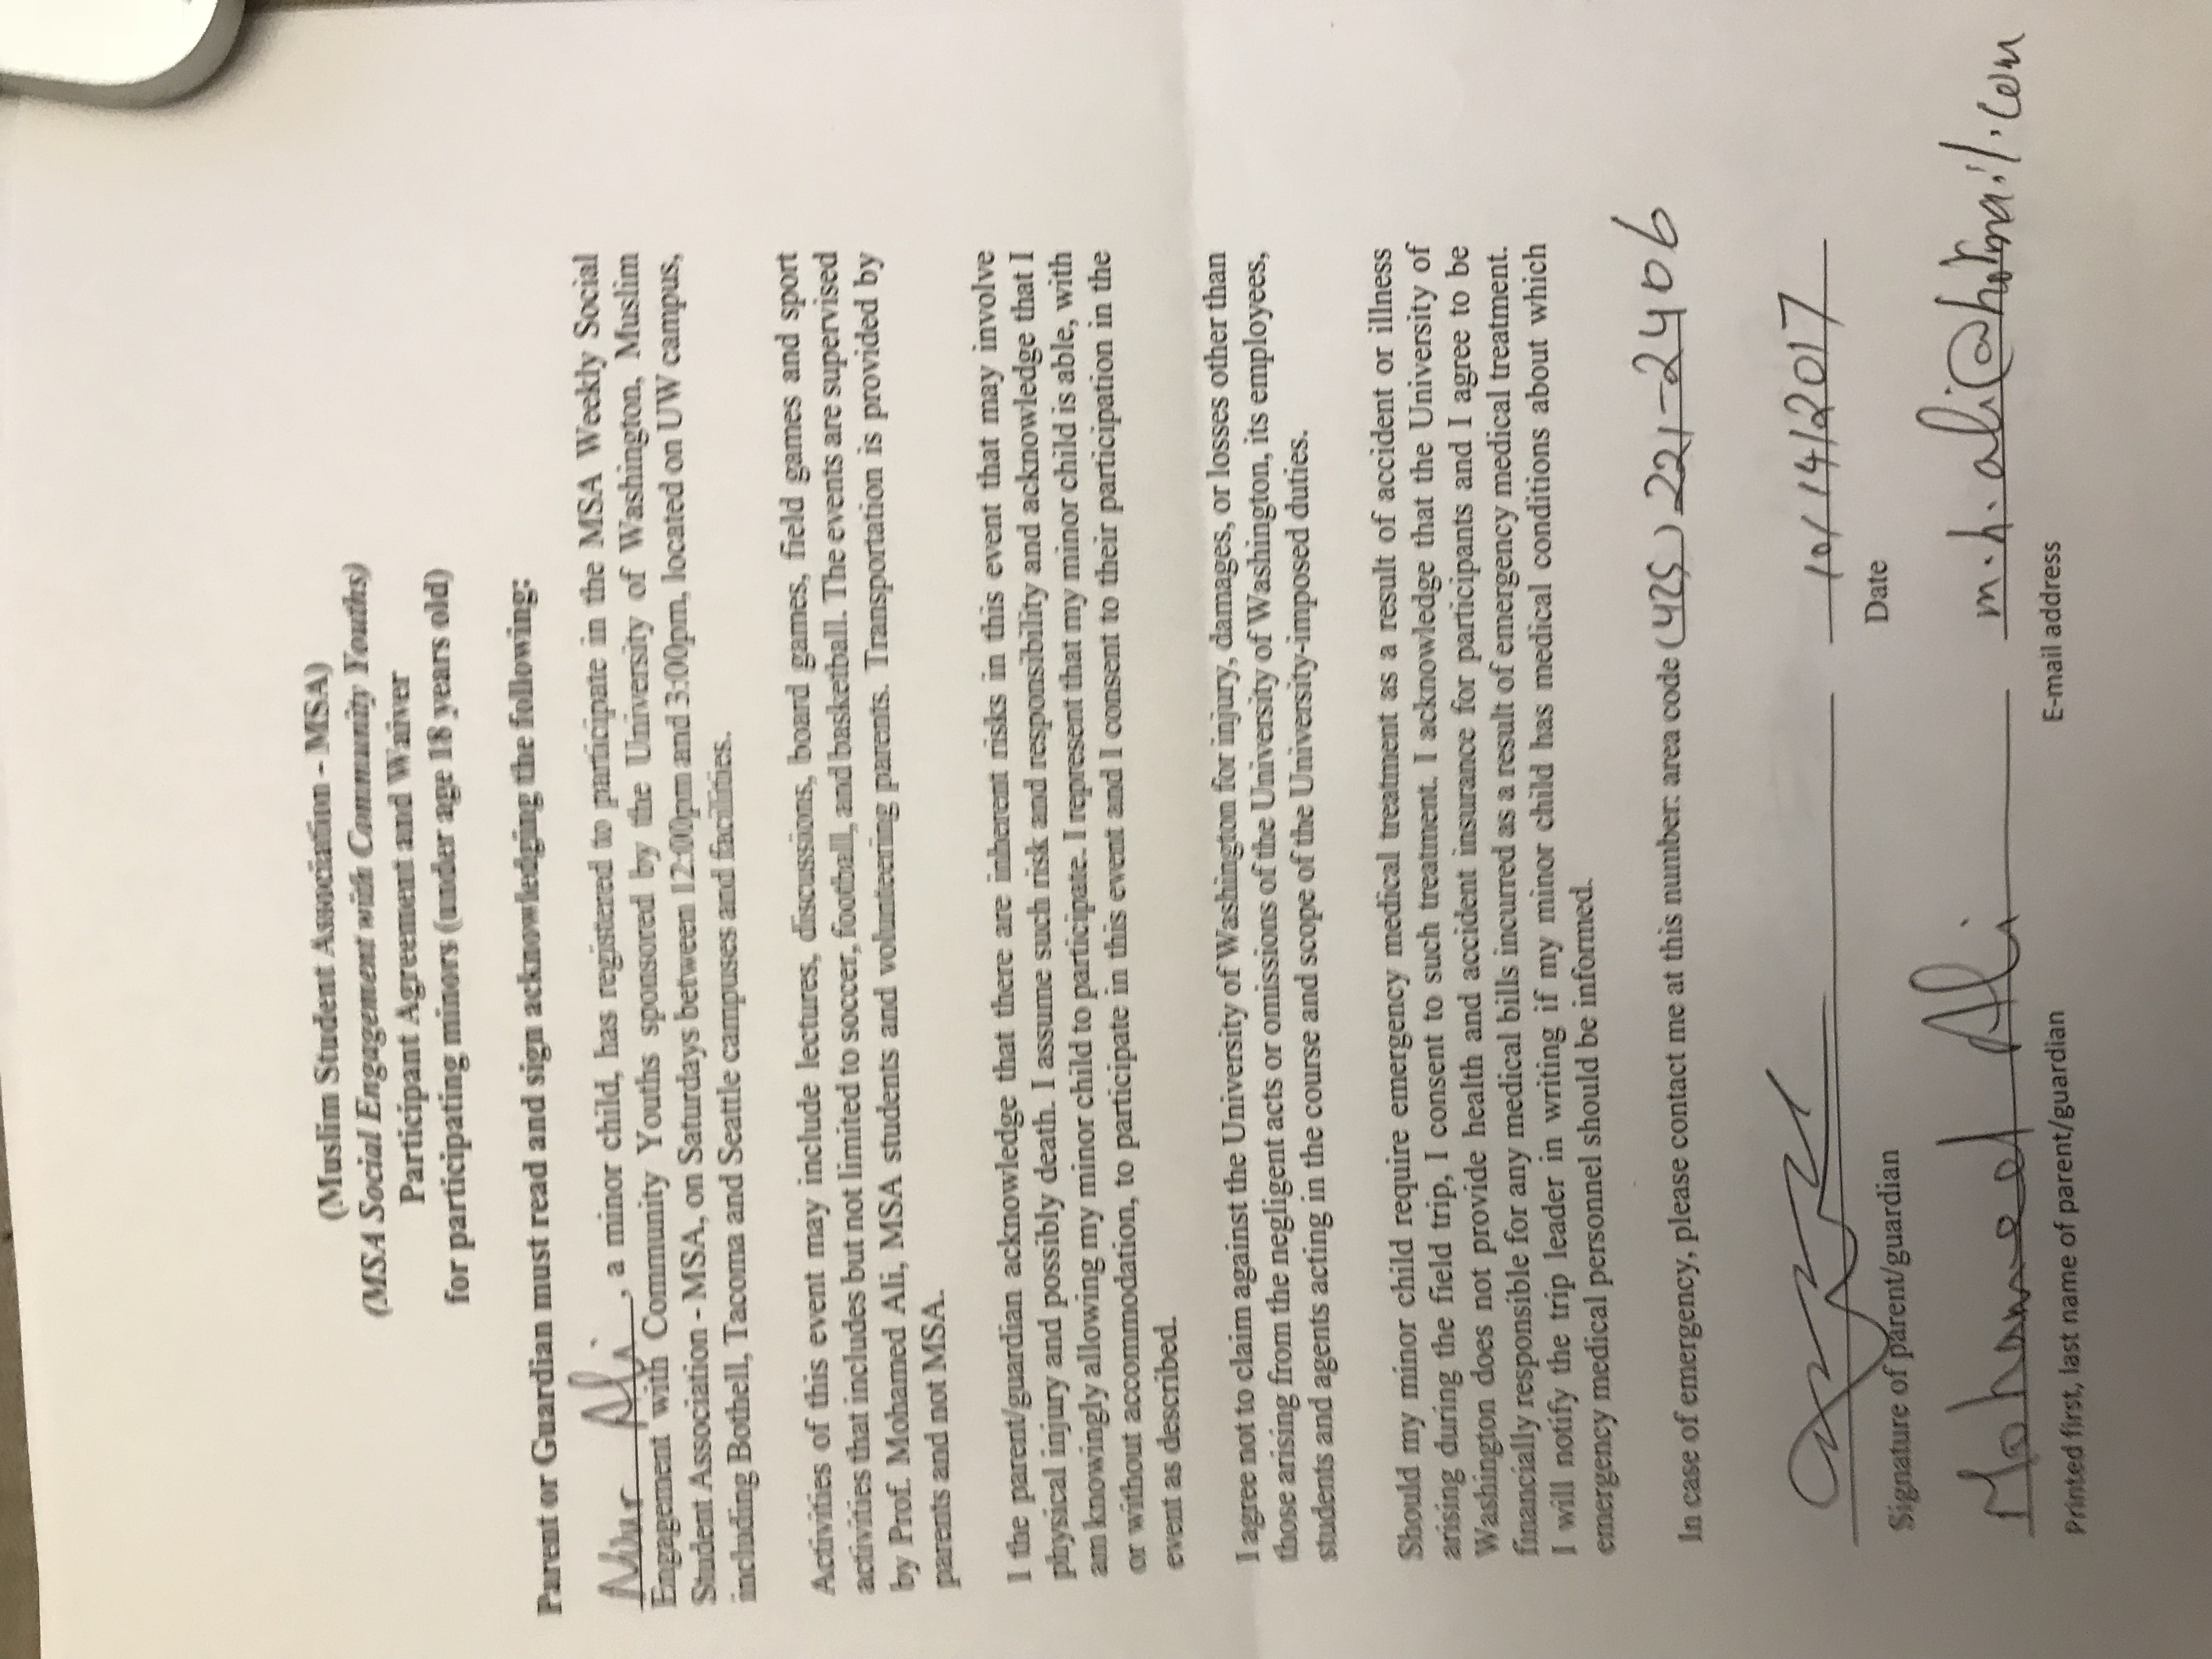 (Muslim Student Association - MSA)
(MSA Social Engagement with Community Youths)
Participant Agreement and Waiver
for participating minors (under age 18 years old)
Parent or Guardian must read and sign acknowledging the following:
Nour Ali, a minor child, has registered to participate in the MSA Weekly Social
Engagement with Community Youths sponsored by the University of Washington, Muslim
Student Association - MSA, on Saturdays between 12:00pm and 3:00pm, located on UW campus,
including Bothell, Tacoma and Seattle campuses and facilities.
Activities of this event may include lectures, discussions, board games, field games and sport
activities that includes but not limited to soccer, football, and basketball. The events are supervised
by Prof. Mohamed Ali, MSA students and volunteering parents. Transportation is provided by
parents and not MSA.
I the parent/guardian acknowledge that there are inherent risks in this event that may involve
physical injury and possibly death. I assume such risk and responsibility and acknowledge that I
am knowingly allowing my minor child to participate. I represent that my minor child is able, with
or without accommodation, to participate in this event and I consent to their participation in the
event as described.
I agree not to claim against the University of Washington for injury, damages, or losses other than
those arising from the negligent acts or omissions of the University of Washington, its employees,
students and agents acting in the course and scope of the University-imposed duties.
Should my minor child require emergency medical treatment as a result of accident or illness
arising during the field trip, I consent to such treatment. I acknowledge that the University of
Washington does not provide health and accident insurance for participants and I agree to be
financially responsible for any medical bills incurred as a result of emergency medical treatment.
I will notify the trip leader in writing if my minor child has medical conditions about which
emergency medical personnel should be informed.
In case of emergency, please contact me at this number: area code (425) 221-2406
10/14/2017
Signature of parent/guardian Date
Mohamed Ali m.h.ali@hotmail.com
Printed first, last name of parent/guardian E-mail address